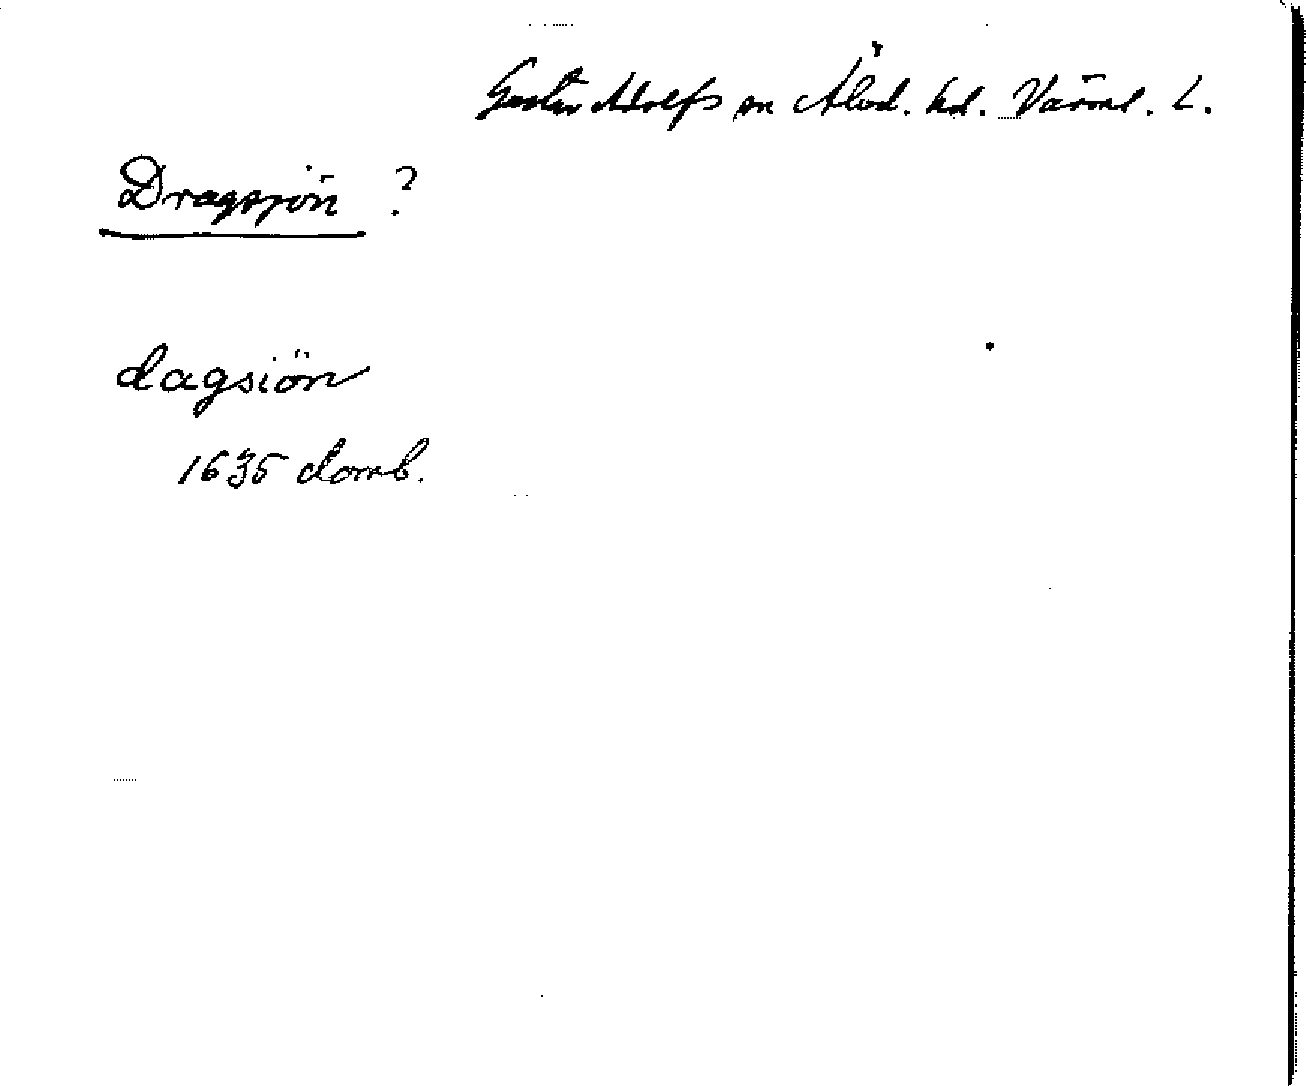 Gustav Adolfs sn Älvd. hd. Värml. L.
Dragsjön ?
dagsiön
1635 domb.